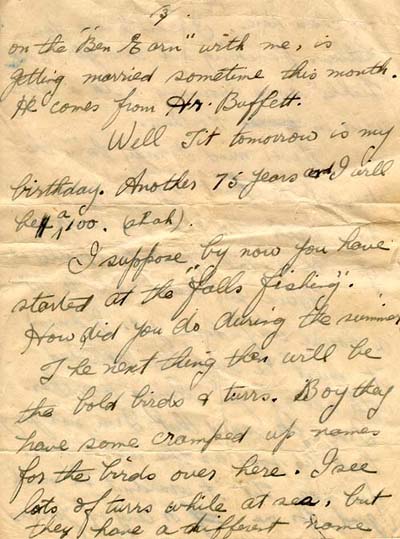 3.
on the "Ben Earn" with me, is
getting married sometime this month.
He comes from Hr. Buffett.
Well Tit tomorrow is my
birthday. Another 75 years and I will
be a 100. (Rah).
I suppose by now you have
started at the "falls fishing".
How did you do during the summer
The next thing then will be
the bold birds & turrs. Boy they
have some cramped up names
for the birds over here. I see
lots of turrs while at sea, but
they have a different name